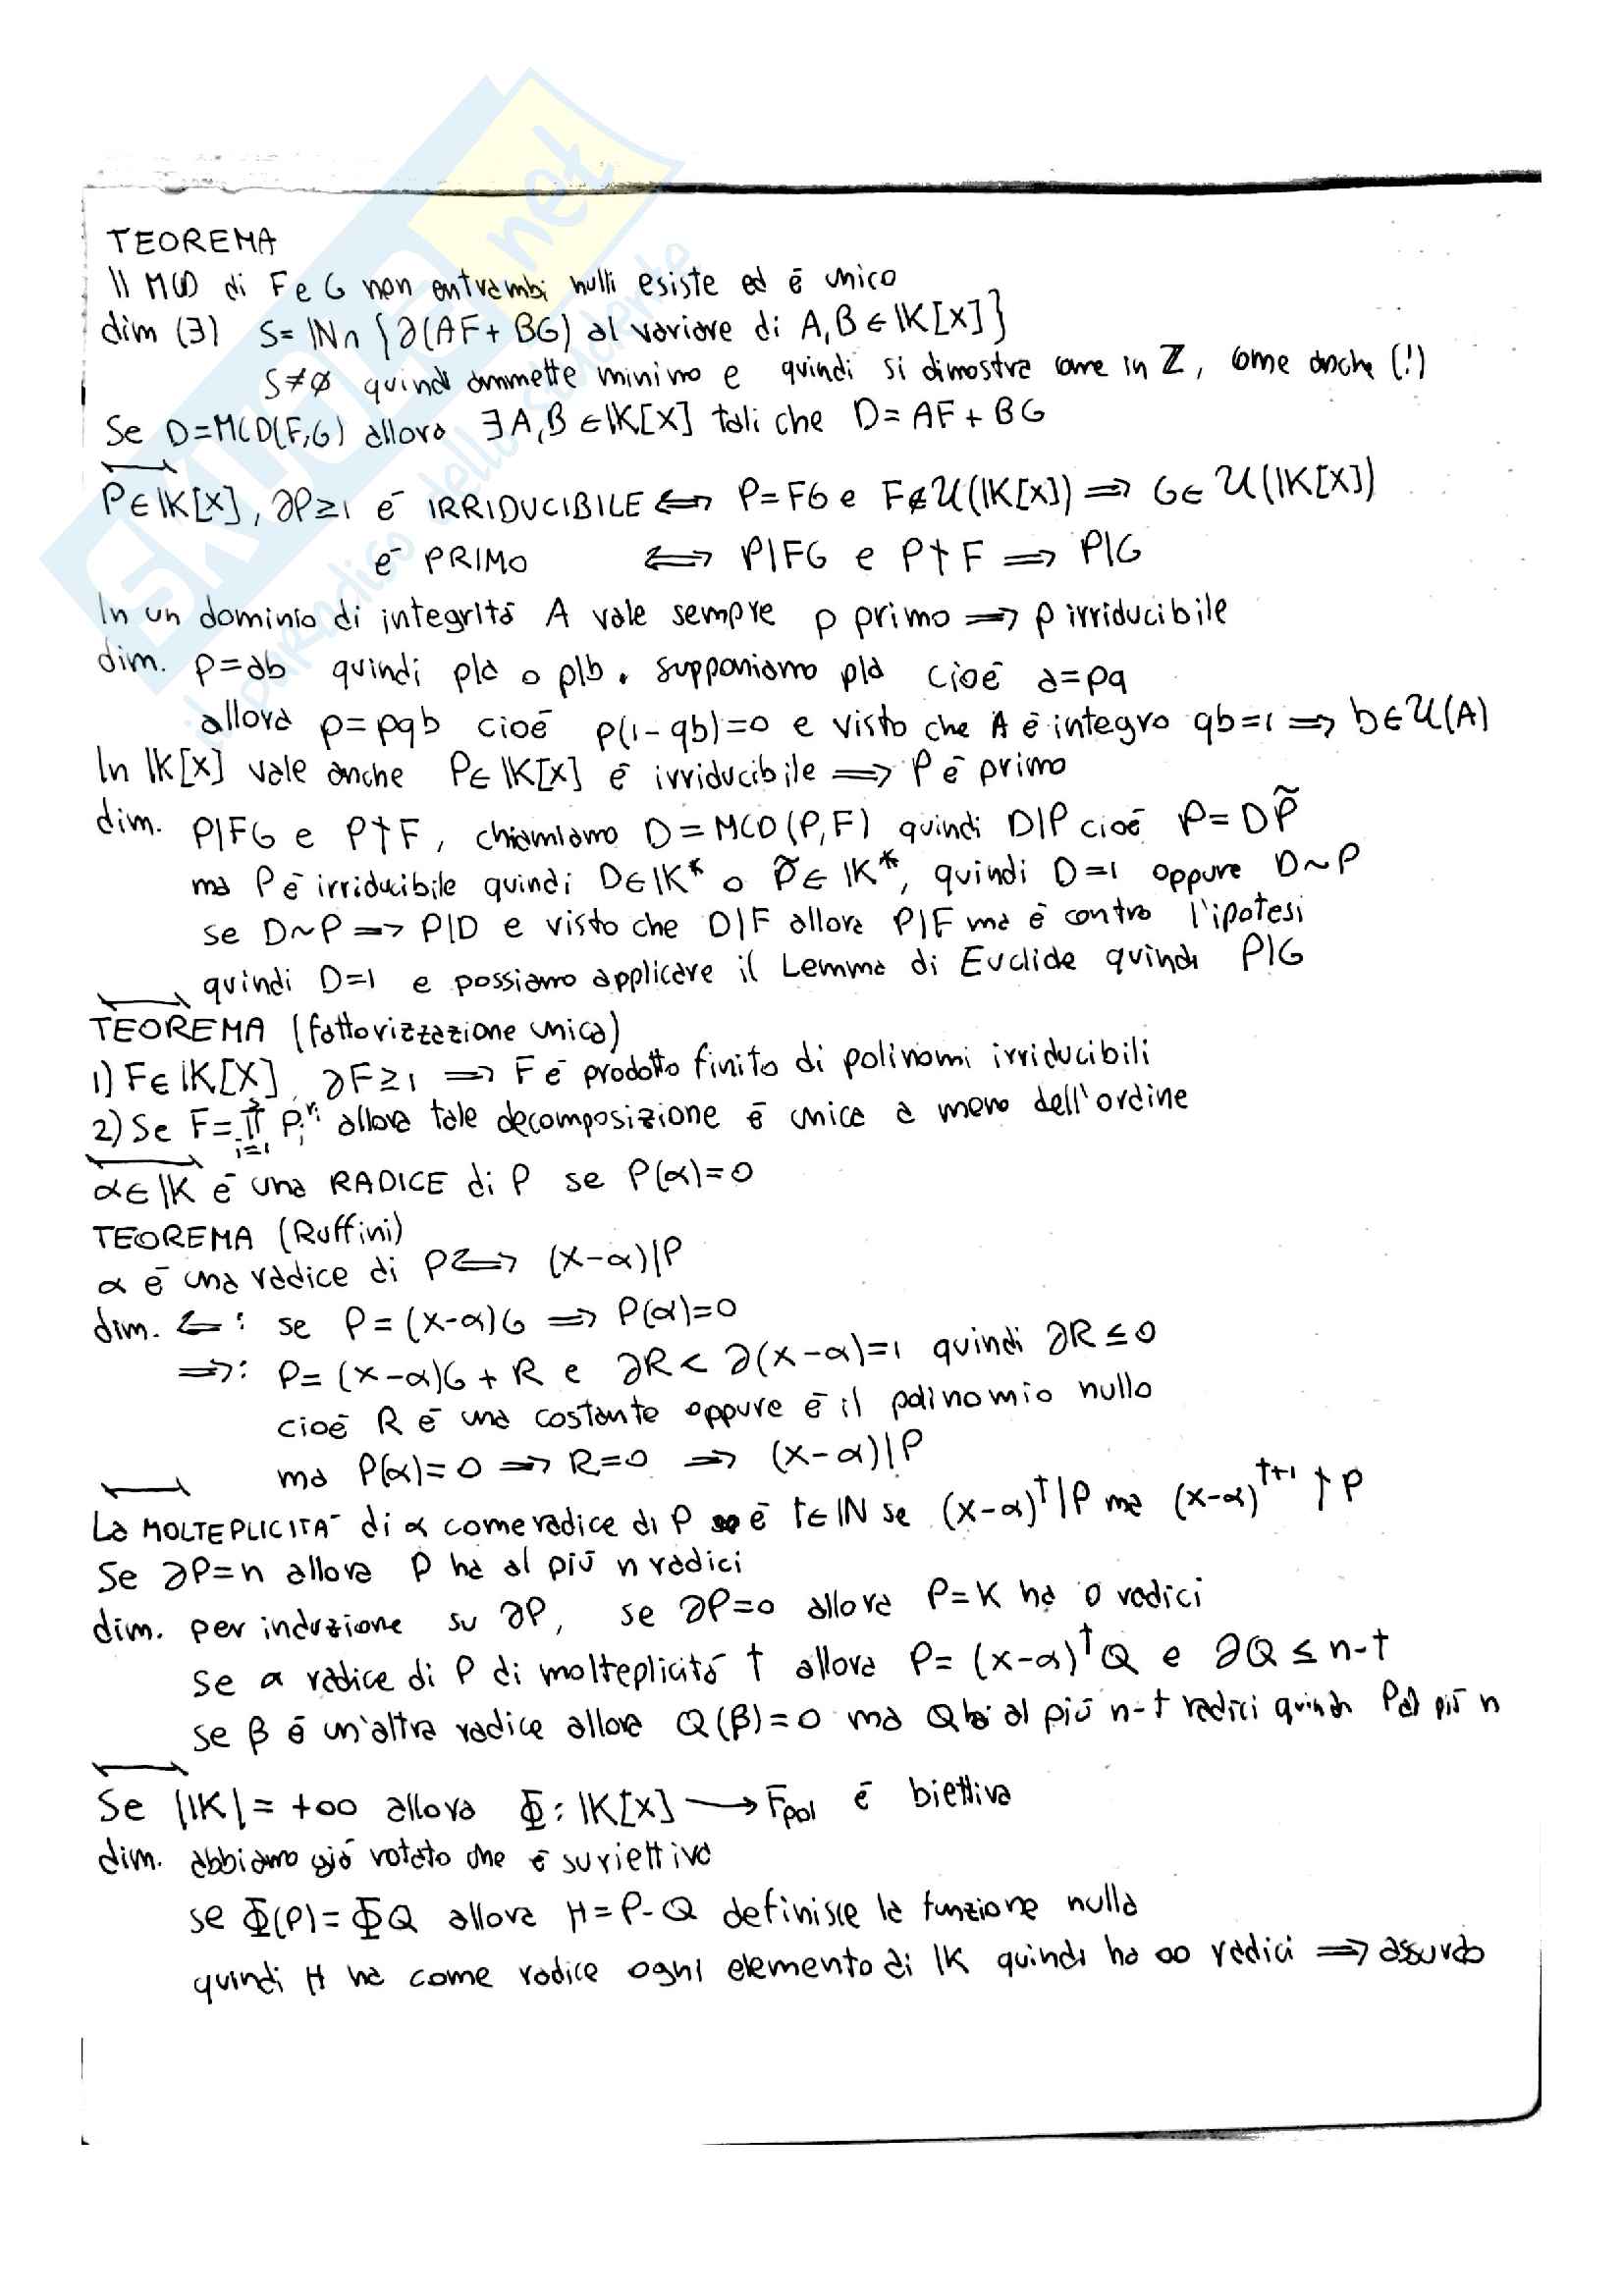 TEOREMA
Il MCD di F e G non entrambi nulli esiste ed è unico
dim (∃) S= ℕ∩{∂(AF+BG) al variare di A,B∈𝕂[X]}
S≠∅ quindi ammette minimo e quindi si dimostra come in ℤ, come anche (!)
Se D=MCD(F,G) allora ∃A,B∈𝕂[X] tali che D=AF+BG
P∈𝕂[X], ∂P≥1 è IRRIDUCIBILE ⟺ P=FG e F∉𝒰(𝕂[X]) ⟹ G∈𝒰(𝕂[X])
è PRIMO ⟺ P|FG e P∤F ⟹ P|G
In un dominio di integrità A vale sempre p primo ⟹ p irriducibile
dim. p=ab quindi p|a o p|b. supponiamo p|a cioè a=pq
allora p=pqb cioè p(1-qb)=0 e visto che A è integro qb=1 ⟹ b∈𝒰(A)
In 𝕂[X] vale anche P∈𝕂[X] è irriducibile ⟹ P è primo
dim. P|FG e P∤F, chiamiamo D=MCD(P,F) quindi D|P cioè P=DP̃
ma P è irriducibile quindi D∈𝕂* o P̃∈𝕂*, quindi D=1 oppure D~P
se D~P ⟹ P|D e visto che D|F allora P|F ma è contro l'ipotesi
quindi D=1 e possiamo applicare il Lemma di Euclide quindi P|G
TEOREMA (fattorizzazione unica)
1) F∈𝕂[X], ∂F≥1 ⟹ F è prodotto finito di polinomi irriducibili
2) Se F=∏ᵢ₌₁ˢ Pᵢʳⁱ allora tale decomposizione è unica a meno dell'ordine
α∈𝕂 è una RADICE di P se P(α)=0
TEOREMA (Ruffini)
α è una radice di P ⟺ (x-α)|P
dim. ⟸: se P=(x-α)G ⟹ P(α)=0
⟹: P=(x-α)G+R e ∂R<∂(x-α)=1 quindi ∂R≤0
cioè R è una costante oppure è il polinomio nullo
ma P(α)=0 ⟹ R=0 ⟹ (x-α)|P
La MOLTEPLICITA' di α come radice di P è t∈ℕ se (x-α)ᵗ|P ma (x-α)ᵗ⁺¹∤P
Se ∂P=n allora P ha al più n radici
dim. per induzione su ∂P, se ∂P=0 allora P=K ha 0 radici
se α radice di P di molteplicità t allora P=(x-α)ᵗQ e ∂Q≤n-t
se β è un'altra radice allora Q(β)=0 ma Q ha al più n-t radici quindi P al più n
Se |𝕂|=+∞ allora Φ:𝕂[X]⟶Fpol è biettiva
dim. abbiamo già notato che è suriettiva
se Φ(P)=ΦQ allora H=P-Q definisce la funzione nulla
quindi H ha come radice ogni elemento di 𝕂 quindi ha ∞ radici ⟹ assurdo
SKUOLA.net
il paradiso dello studente